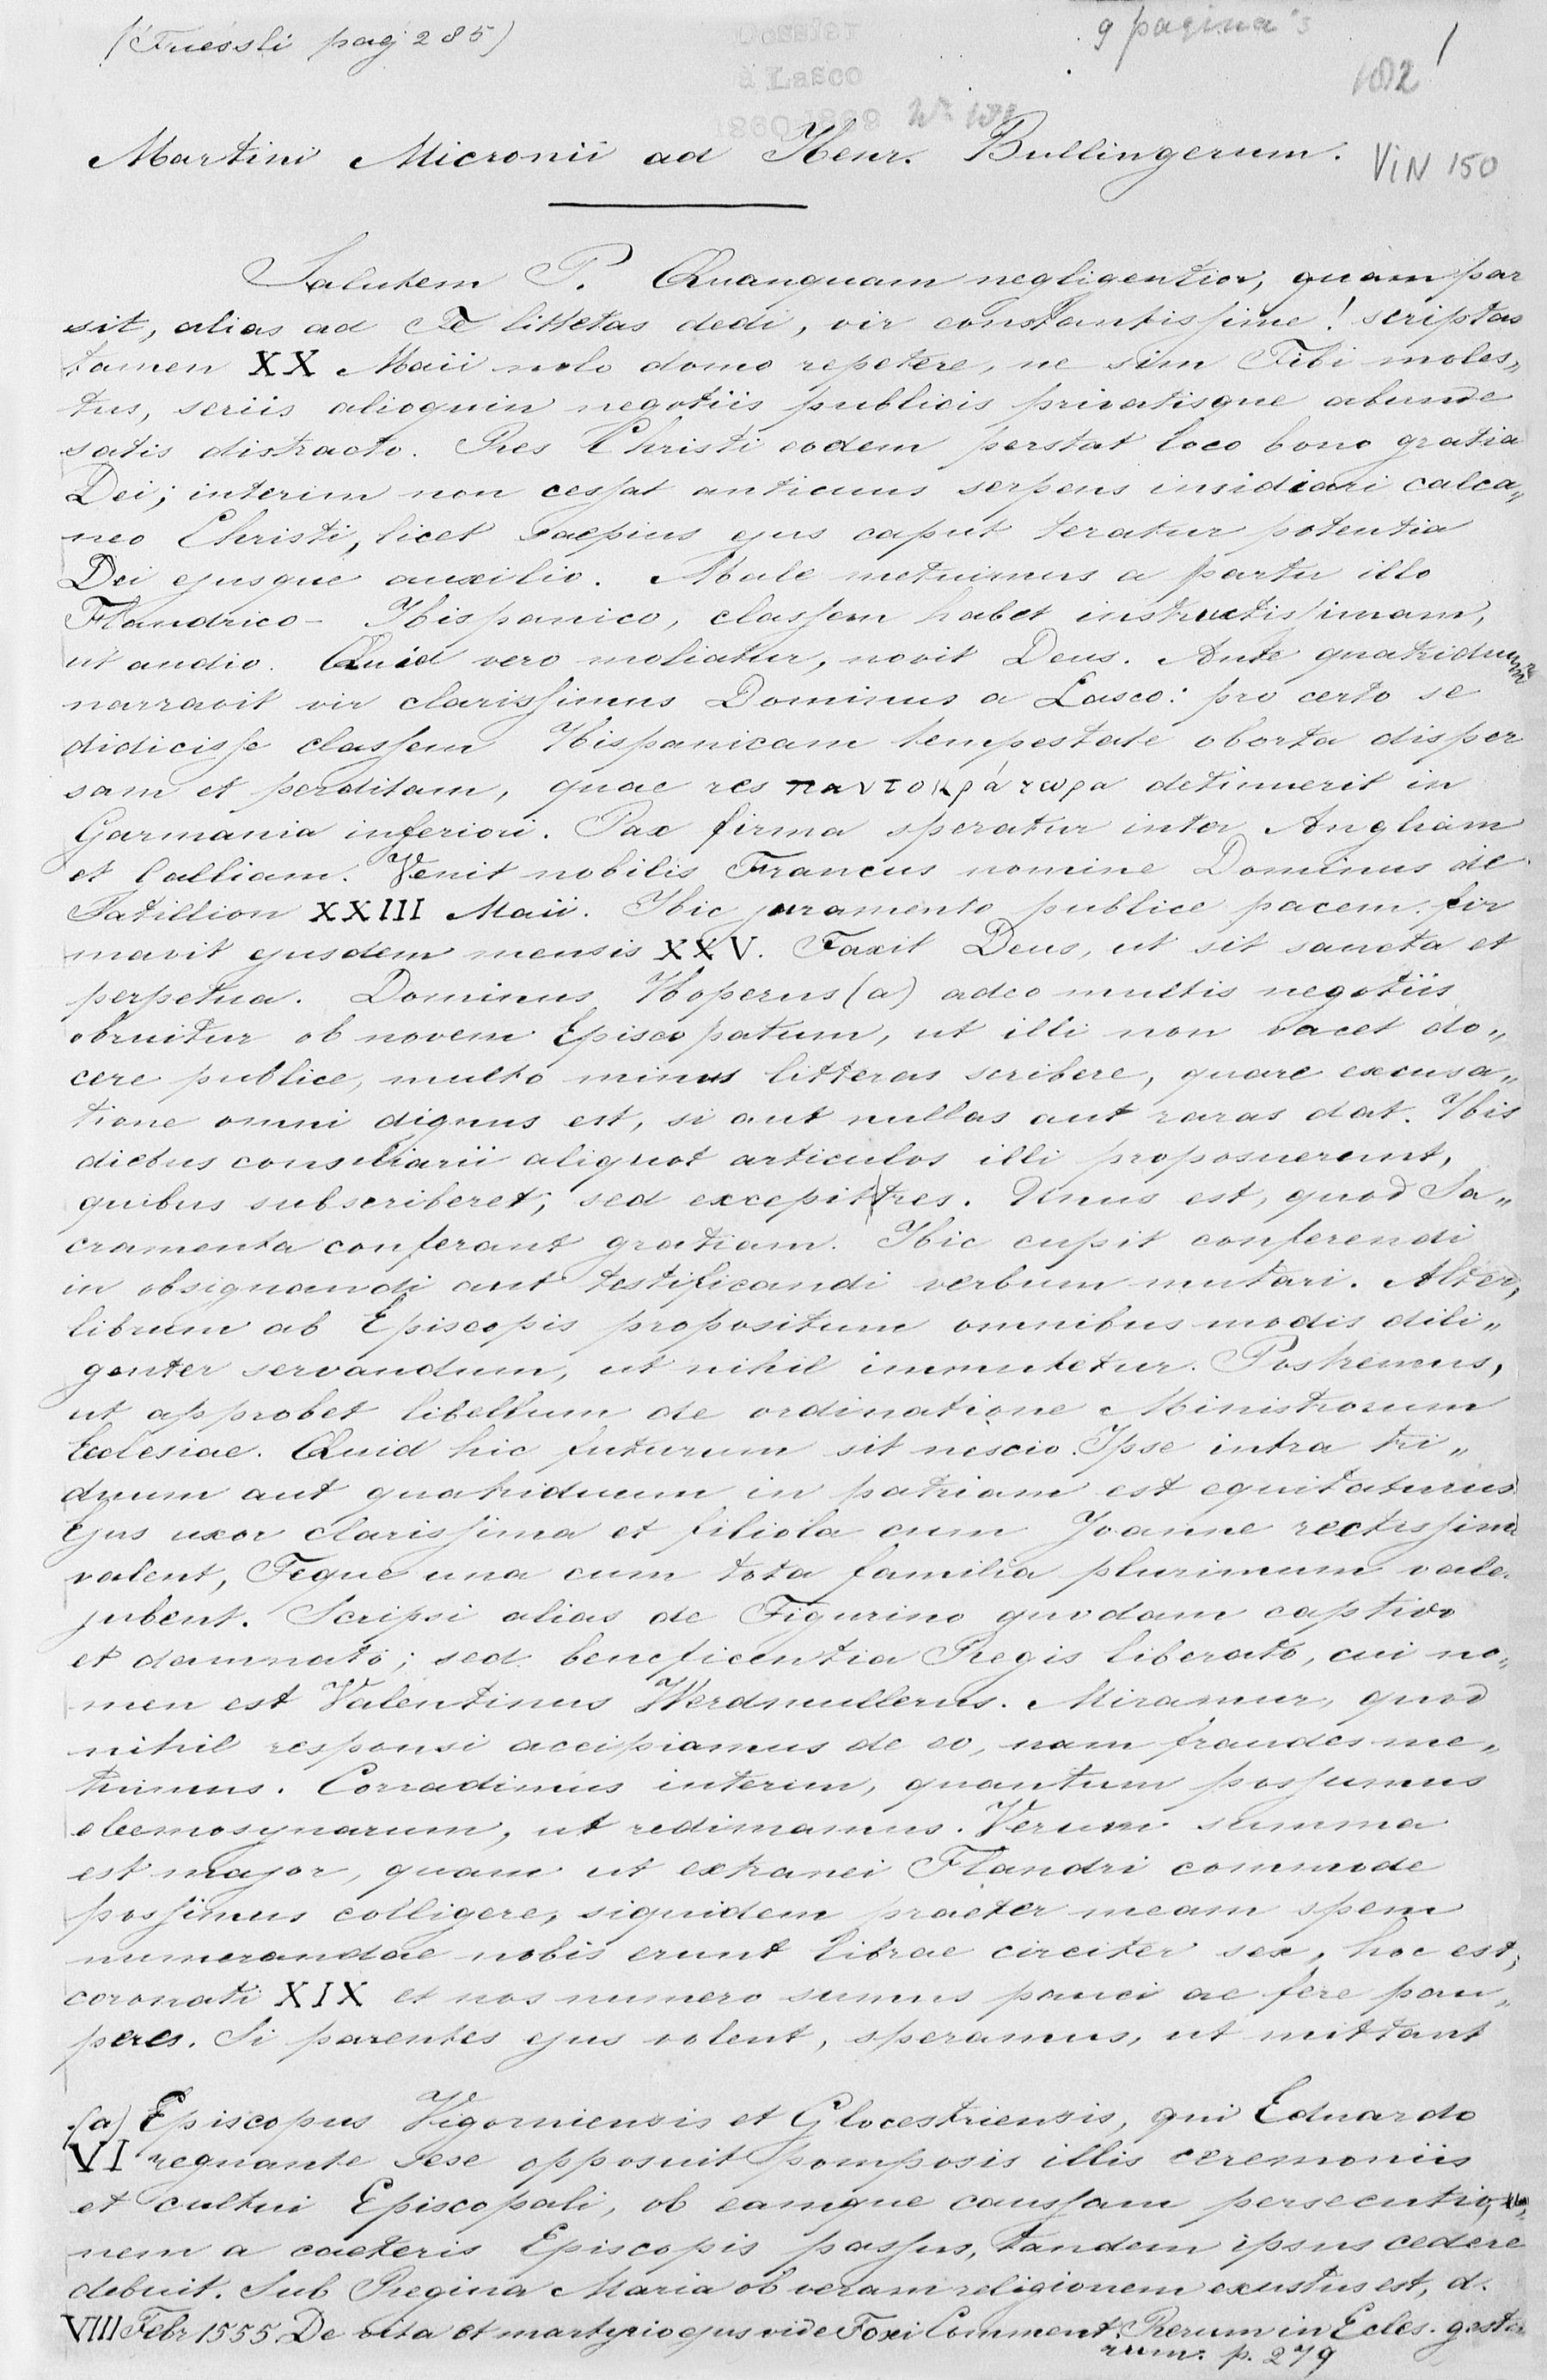 (Fuessli pag 285)
9 pagina's
à Lasco
182
1
Martini Micronii ad Henr. Bullingerum.
ViN 150
Salutem P. Quanquam negligentior, quam par
sit, alias ad Te littetas dedi, vir constantissime! scriptas
tamen XX Maii nolo domo repetere, ne sim Tibi moles„
tus, seriis alioquin negotiis publicis privatisque abunde
satis distracto. Res Christi eodem perstat loco bono gratia
Dei; interim non cessat anticuus serpens insidiari calca„
neo Christi, licet saepius ejus caput teratur potentia
Dei ejusque auxilio. Male metuimus a partu illo
Flandrico - Hispanico, classem habet instructissimam,
ut audio. Quid vero moliatur, novit Deus. Ante quatriduum
narravit vir clarissimus Dominus a Lasco: pro certo se
didicisse classem Hispanicam tempestate oborta disper
sam et perditam, quae res παντοκράτωρα detinuerit in
Germania inferiori. Pax firma speratur inter Angliam
et Galliam. Venit nobilis Francus nomine Dominus de
Satillion XXIII Maii. Hic juramento publice pacem fir
mavit ejusdem mensis XXV. Faxit Deus, ut sit sancta et
perpetua. Dominus Hoperus (a) adeo multis negotiis
obruitur ob novem Episcopatum, ut illi non vacet do„
cere publice, multo minus litteras scribere, quare excusa„
tione omni dignus est, si aut nullas aut raras dat. His
diebus consiliarii aliquot articulos illi proposuerunt,
quibus subscriberet; sed excepit tres. Unus est, quod Sa„
cramenta conferant gratiam. Hic cupit conferendi
in obsignandi aut testificandi verbum mutari. Alter,
librum ab Episcopis propositum omnibus modis dili„
genter servandum, ut nihil immutetur. Postremus,
ut approbet libellum de ordinatione Ministrorum
Ecclesiae. Quid hic futurum sit nescio. Ipse intra tri„
duum aut quatriduum in patriam est equitaturus
Ejus uxor clarissima et filiola cum Joanne rectissime
valent, Teque una cum tota familia plurimum vale.
jubent. Scripsi alias de Tigurino quodam captivo
et damnato; sed beneficentia Regis liberato, cui no„
men est Valentinus Werdmullerus. Miramur, quod
nihil responsi accipiamus de eo, nam fraudes me„
tuimus. Corradimus interim, quantum possumus
eleemosynarum, ut redimamus. Verum summa
est major, quam ut extranei Flandri commode
possimus colligere, siquidem praeter meam spem
numerandae nobis erunt librae circiter sex, hoc est,
coronati XIX et nos numero sumus pauci ac fere pau„
peres. Si parentes ejus volent, speramus, ut mittant
(a) Episcopus Vigorniensis et Glocestriensis, qui Eduardo
VI regnante sese opposuit pomposis illis ceremoniis
et cultui Episcopali, ob eamque caussam persecutio„
nem a caeteris Episcopis passus, tandem ipsus cedere
debuit. Sub Regina Maria ob veram religionem exustus est, d.
VIII Febr 1555. De vita et martyrio ejus vide Foxi Comment. Rerum in Eccles. gesta
rum. p. 279